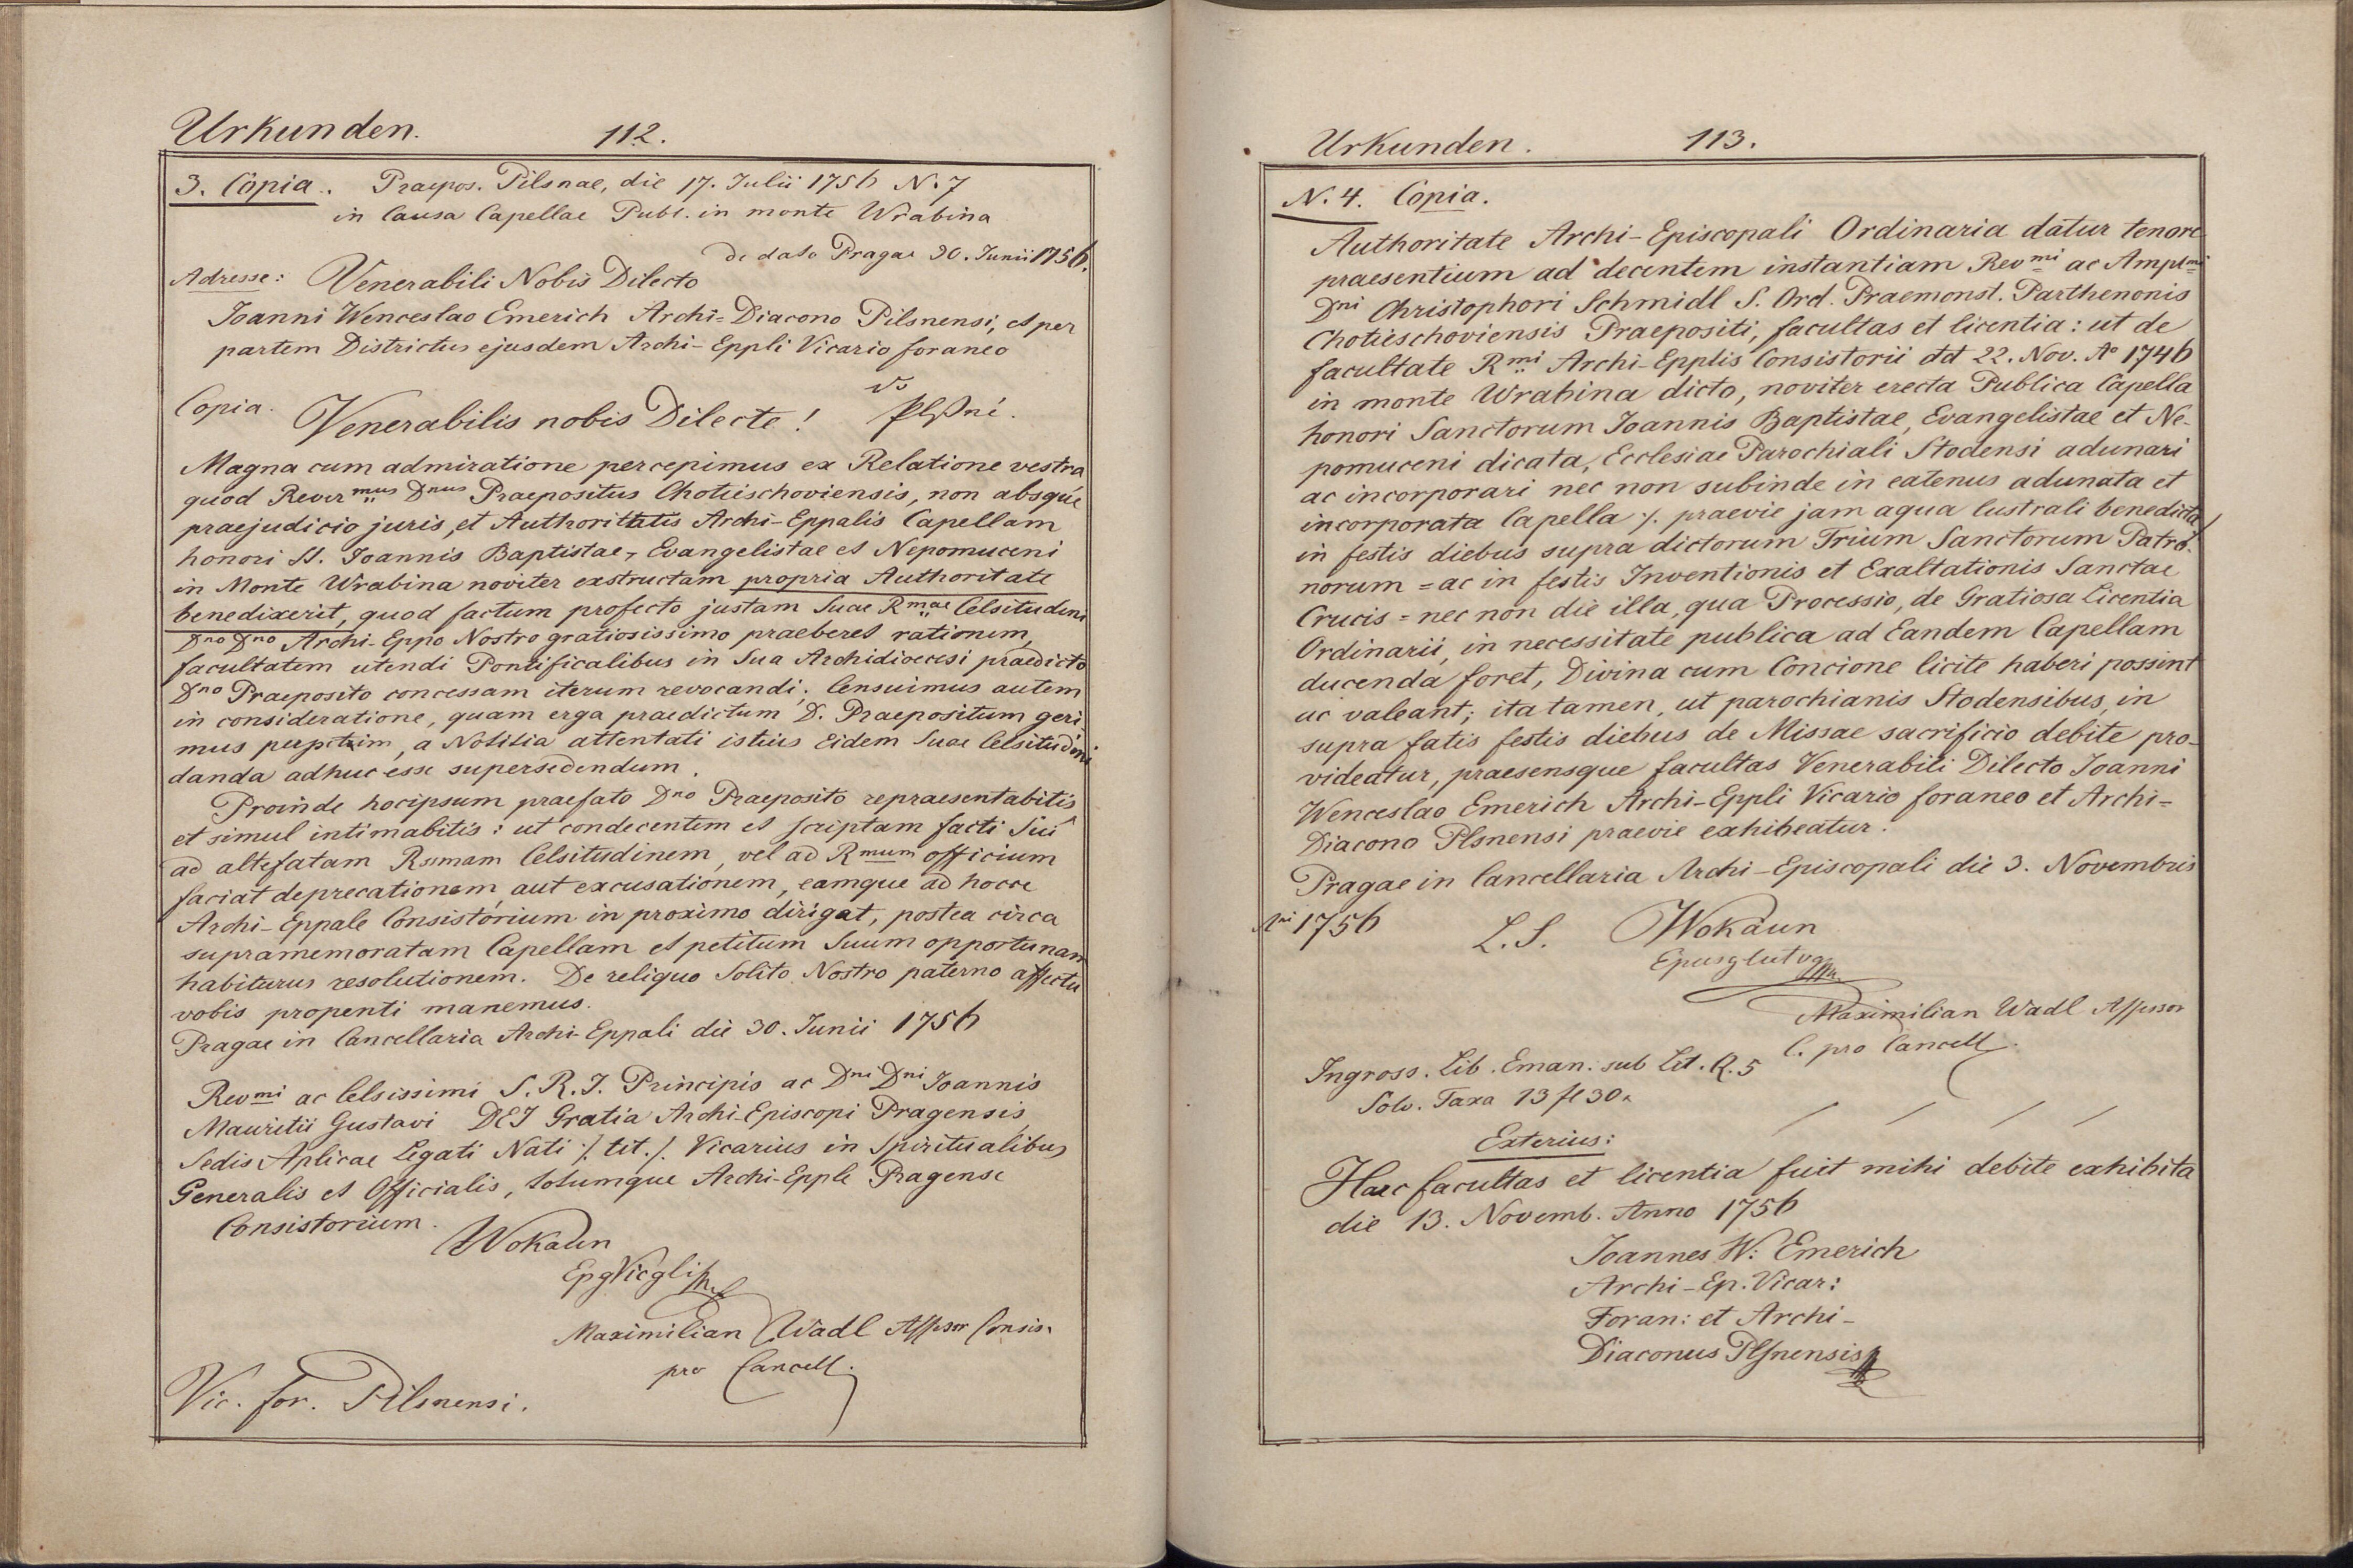 Urkunden. 112.
3. Copia. Praepos. Pilsnae, die 17. Julii 1756 N. 7
in Causa Capellae Publ. in monte Wrabina
de dato Pragae 30. Junii 1756.
Adresse: Venerabili Nobis Dilecto
Joanni Wenceslao Emerich Archi-Diacono Pilsnensi, et per
partem Districtus ejusdem Archi-Eppli Vicario foraneo
Copia. Venerabilis nobis Dilecte!
Magna cum admiratione percepimus ex Relatione vestra
quod Revermus Dnus Praepositus Chotieschoviensis, non absque
praejudicio juris, et Authoritatis Archi-Eppalis Capellam
honori SS. Joannis Baptistae, Evangelistae et Nepomuceni
in Monte Wrabina noviter exstructam propria Authoritate
benedixerit, quod factum profecto justam Suae Rmae Celsitudini
Dno Dno Archi-Eppo Nostro gratiosissimo praeberet rationem,
facultatem utendi Pontificalibus in Sua Archidioecesi praedicto
Dno Praeposito concessam iterum revocandi; Censuimus autem
in consideratione, quam erga praedictum D. Praepositum geri
mus perpetim, a Notitia attentati istius Eidem Suae Celsitudini
danda adhuc esse supersedendum.
Proinde hocipsum praefato Dno Praeposito repraesentabitis
et simul intimabitis: ut condecentem et scriptam facti Sui
ad altefatam Rssmam Celsitudinem, vel ad Rmum officium
faciat deprecationem, aut excusationem, eamque ad hocce
Archi-Eppale Consistorium in proximo dirigat, postea circa
supramemoratam Capellam et petitum Suum opportunam
habiturus resolutionem. De reliquo Solito Nostro paterno affectu
vobis propenti manemus.
Pragae in Cancellaria Archi-Eppali die 30. Junii 1756
Revmi ac Celsissimi S. R. I. Principis ac Dni Dni Joannis
Mauritii Gustavi DEI Gratia Archi-Episcopi Pragensis,
Sedis Aplicae Legati Nati /. tit. /. Vicarius in Spiritualibus
Generalis et Officialis, totumque Archi-Epple Pragense
Consistorium.
Wokaun
EpgVicglis
Maximilian Wadl Assessor Consis.
pro Cancell.
Vic. for. Pilsnensi.
Urkunden. 113.
N. 4. Copia.
Authoritate Archi-Episcopali Ordinaria datur tenore
praesentium ad decentem instantiam Revmi ac Amplmi
Dni Christophori Schmidl S. Ord. Praemonst. Parthenonis
Chotieschoviensis Praepositi, facultas et licentia: ut de
facultate Rmi Archi-Epplis Consistorii dd 22. Nov. Ao 1746
in monte Wrabina dicto, noviter erecta Publica Capella
honori Sanctorum Joannis Baptistae, Evangelistae et Ne-
pomuceni dicata, Ecclesiae Parochiali Stodensi adunari
ac incorporari nec non subinde in eatenus adunata et
incorporata Capella /. praevie jam aqua lustrali benedicta /
in festis diebus supra dictorum Trium Sanctorum Patro-
norum = ac in festis Inventionis et Exaltationis Sanctae
Crucis = nec non die illa, qua Processio, de Gratiosa Licentia
Ordinarii, in necessitate publica ad Eandem Capellam
ducenda foret, Divina cum Concione licite haberi possint
ac valeant; ita tamen, ut parochianis Stodensibus, in
supra fatis festis diebus de Missae sacrificio debite pro-
videatur, praesensque facultas Venerabili Dilecto Joanni
Wenceslao Emerich Archi-Eppli Vicario foraneo et Archi-
Diacono Plsnensi praevie exhibeatur.
Pragae in Cancellaria Archi-Episcopali die 3. Novembris
Ani 1756 L. S. Wokaun
Maximilian Wadl Assessor
C. pro Cancell.
Ingross. Lib. Eman: sub Lit. R. 5
Solv. Taxa 13 fl 30
Exterius:
Haec facultas et licentia fuit mihi debite exhibita
die 13. Novemb. Anno 1756
Joannes W: Emerich
Archi-Ep. Vicar:
Foran: et Archi-
Diaconus Plsnensis